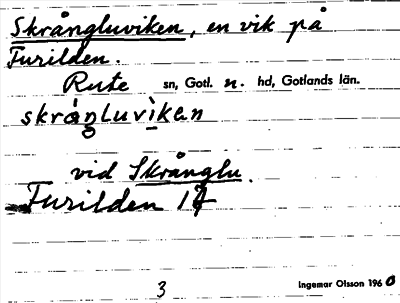 Skrångluviken, en vik på
Furilden.
Rute sn, Gotl. n. hd, Gotlands län.
skrångluvìken
vid Skrånglu.
Furilden 1
3 Ingemar Olsson 1960